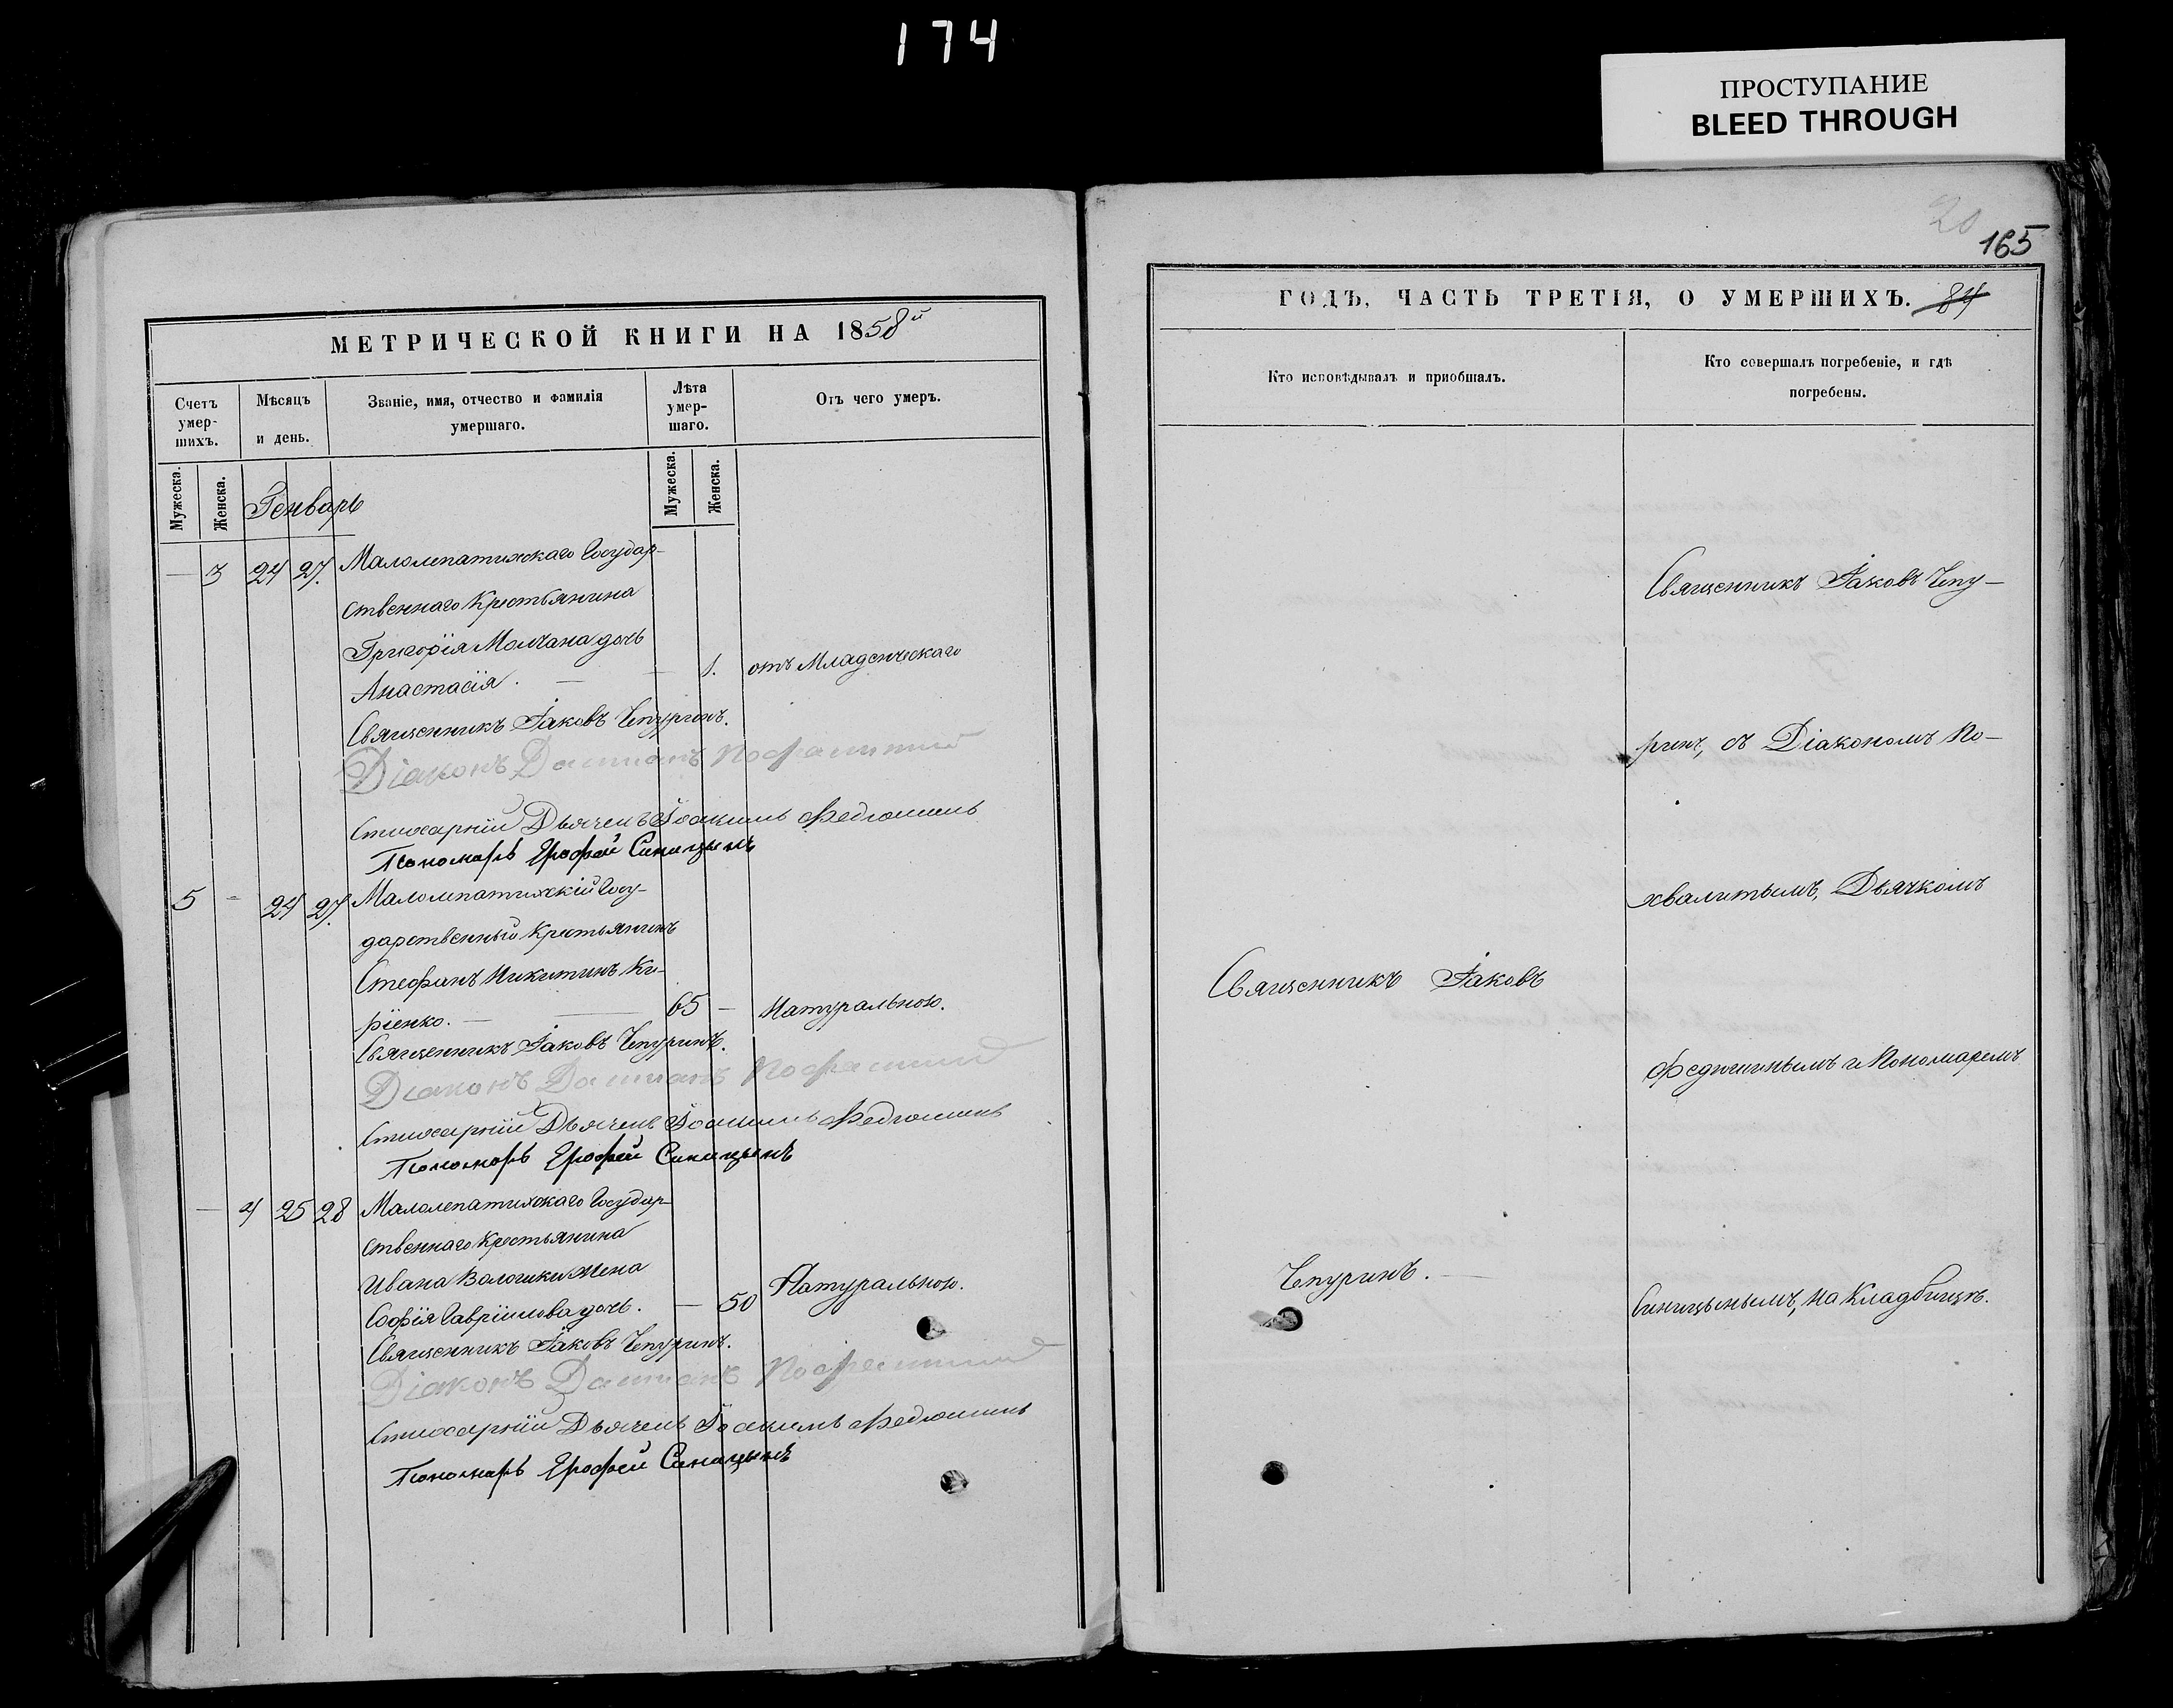 174
ПРОСТУПАНИЕ
BLEED THROUGH
20
165
МЕТРИЧЕСКОЙ КНИГИ НА 1858й
Счетъ умер-шихъ.
Мѣсяцъ и день.
Званіе, имя, отчество и фамилія умершаго.
Лѣта умер-шаго.
Отъ чего умеръ.
Мужеска.
Женска.
Генварь
Мужеска.
Женска.
— 3 24 27. Малолепатихскаго Государ-
ственнаго Крестьянина
Григорія Молчана дочь
Анастасія. — — 1. отъ Младенческаго
Священникъ Іаковъ Чепуринъ.
Діаконъ Даміанъ
Стихарный Дьячекъ Іоакимъ Федюшинъ
Пономарь Ерофей Синицынъ
5 - 24 27. Малолепатихскій Госу-
дарственный Крестьянинъ
Стефанъ Никитинъ Ки-
ріенко. — — 65 — Натуральною.
Священникъ Іаковъ Чепуринъ.
Діаконъ Даміанъ
Стихарный Дьячекъ Іоакимъ Федюшинъ
Пономарь Ерофей Синицынъ
— 4 25 28 Малолепатихскаго Государ-
ственнаго Крестьянина
Ивана Жена
Софія Гавріилова дочь. — 50 Натуральною.
Священникъ Іаковъ Чепуринъ.
Діаконъ Даміанъ
Стихарный Дьячекъ Іоакимъ Федюшинъ
Пономарь Ерофей Синицынъ
ГОДЪ, ЧАСТЬ ТРЕТІЯ, О УМЕРШИХЪ. 84
Кто исповѣдывалъ и пріобщалъ.
Кто совершалъ погребеніе, и гдѣ
погребены.
Священникъ Іаковъ
Чепуринъ. —
Священникъ Іаковъ Чепу-
ринъ, съ Діакономъ По-
хвалитымъ, Дьячкомъ
Федюшинымъ и Пономаремъ
Синицынымъ, на Кладбищѣ.